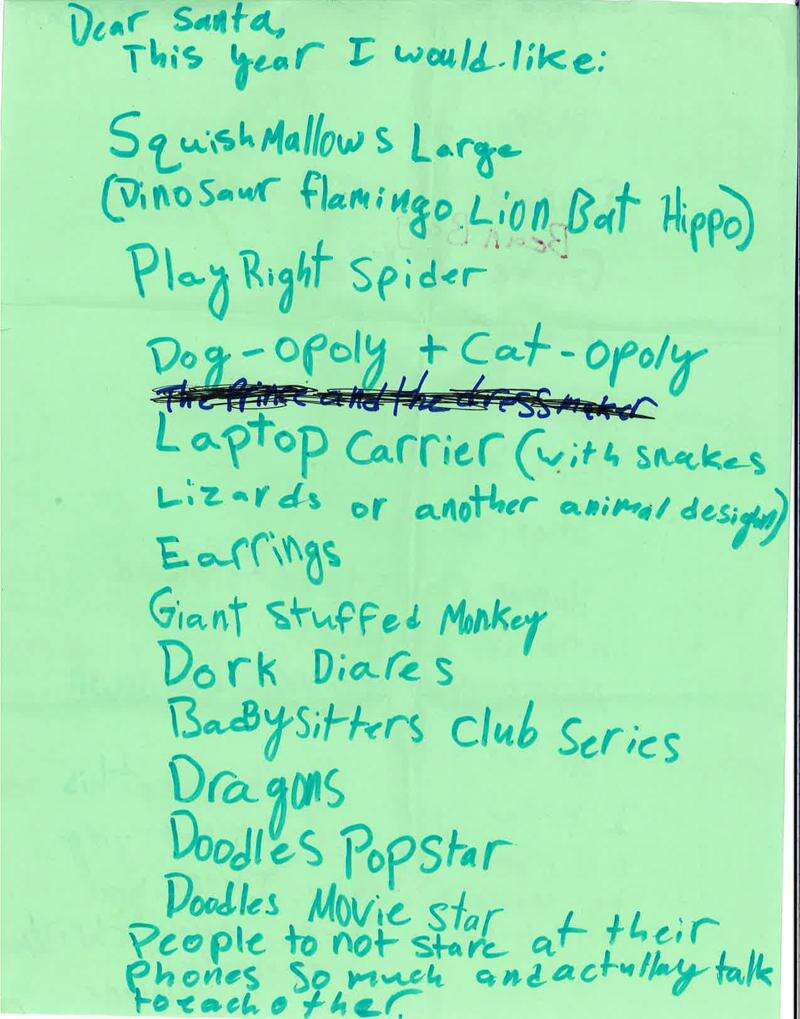 Dear Santa,
This year I would like:
SquishMallows Large
(Dinosaur flamingo Lion Bat Hippo)
Play Right Spider
Dog-opoly + Cat-opoly
The Prince and the dressmaker
Laptop Carrier (with snakes
Lizards or another animal design)
Earrings
Giant Stuffed Monkey
Dork Diares
BaBysitters Club Series
Dragons
Doodles Popstar
Doodles Movie star
People to not stare at their
Phones so much and actullay talk
to each other.